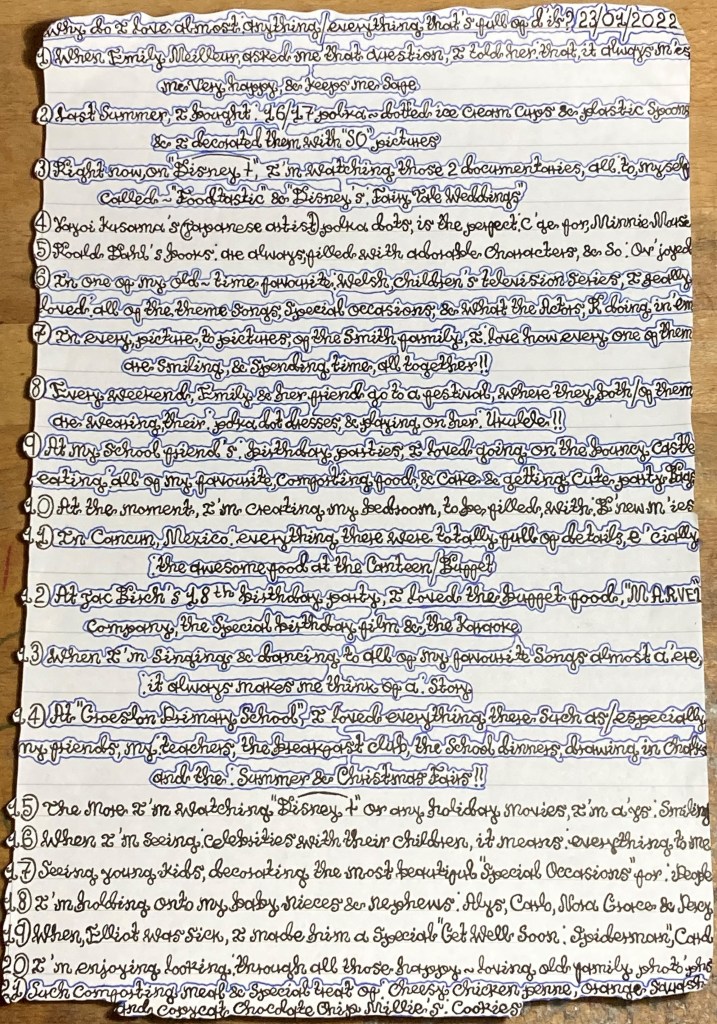 Why do I love almost anything/everything that's full of d'ls? 23/01/2022
1) When Emily Meilleur, asked me that question, I told her, that, it always m'es
me very, happy, & keeps me safe
2) Last Summer, I bought: 16/17 polka~dotted ice cream cups & plastic spoons
& I decorated them with "SO" pictures
3) Right now, on "Disney +", I'm watching those 2 documentaries, all to, myself
Called~ "Foodtastic" & "Disney's, Fairy Tale Weddings"
4) Yayoi Kusama's (Japanese artist) polka dots, is the perfect, C'ge for, Minnie Mouse
5) Roald Dahl's books: are always, filled with adorable characters, & So: On' joyed
6) In one of my old~time favourite, Welsh, children's television series, I really
loved: all of the theme songs, Special occasions, & what the Actors, R doing in em
7) In every, picture, to pictures, of the Smith family, I love how every one of them
are smiling, & spending time, all together!!
8) Every weekend, Emily & her friend go to a festival, where they, both/of them
are wearing, their, polka dot dresses, & playing on her: Ukulele!!
9) At my School friend's: birthday, parties, I loved going, on the Bouncy Castle
eating: all of my favourite, comforting food, & Cake & getting Cute, party bags
10) At the moment, I'm creating, my bedroom, to be, filled, with, E'new m'ies
11) In Cancun, Mexico: everything, there were totally full of details, e'cially
the awesome food at the Canteen/Buffet
12) At Jac Birch's 18th birthday, party, I loved the buffet food, "MARVEL"
Company, the Special birthday film &, the Karaoke
13) When I'm Singing & dancing to all of my favourite Songs almost a'ere,
it always makes me think of a: Story
14) At "Groeslon Primary School", I loved everything, there Such as/especially
my friends, my teachers, the breakfast club, the School dinners, drawing in Chalks
and the: Summer & Christmas Fairs!!
15) The more I'm watching "Disney +" Or any holiday movies, I'm a'ys: Smiling
16) When I'm Seeing: celebrities with their children, it means: everything to me
17) Seeing, young kids, decorating the most beautiful "Special Occasions" for: People
18) I'm holding onto my baby nieces & nephews: Alys, Carlo, Nora Grace & Percy
19) When, Elliot was Sick, I made him a Special "Get Well Soon: Spiderman", Card
20) I'm enjoying looking, through all those, happy~loving old family phot'phs
21) Such Comforting meal & Special treat of: Cheesy, Chicken penne, Orange, Squash
and copycat Chocolate Chip Millie's: Cookies